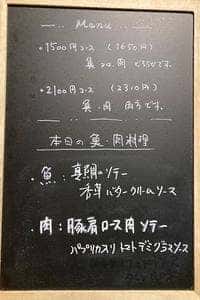 Menu
・1500円コース (1650円)
魚 or 肉 どちらかです。
・2100円コース (2310円)
魚・肉 両方です。
本日の魚・肉料理
・魚：真鯛のソテー
香草バタークリームソース
・肉：豚肩ロース肉ソテー
パプリカ入りトマトデミグラスソース